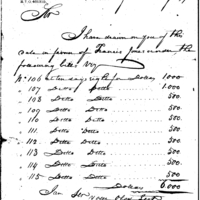 Sir
I have drawn on you of this
date in favour of Francis Jones under the
following bills. Viz
No 106 at ten days sight for Dollars 1000
107 Ditto Ditto 1.000
108 Ditto Ditto 500
109 Ditto Ditto 500
110 Ditto Ditto 500
111 Ditto Ditto 500
112 Ditto Ditto 500
113 Ditto Ditto 500
114 Ditto Ditto 500
115 Ditto Ditto 500
Dollars 6.000
I am Sir
Your Obt Servt